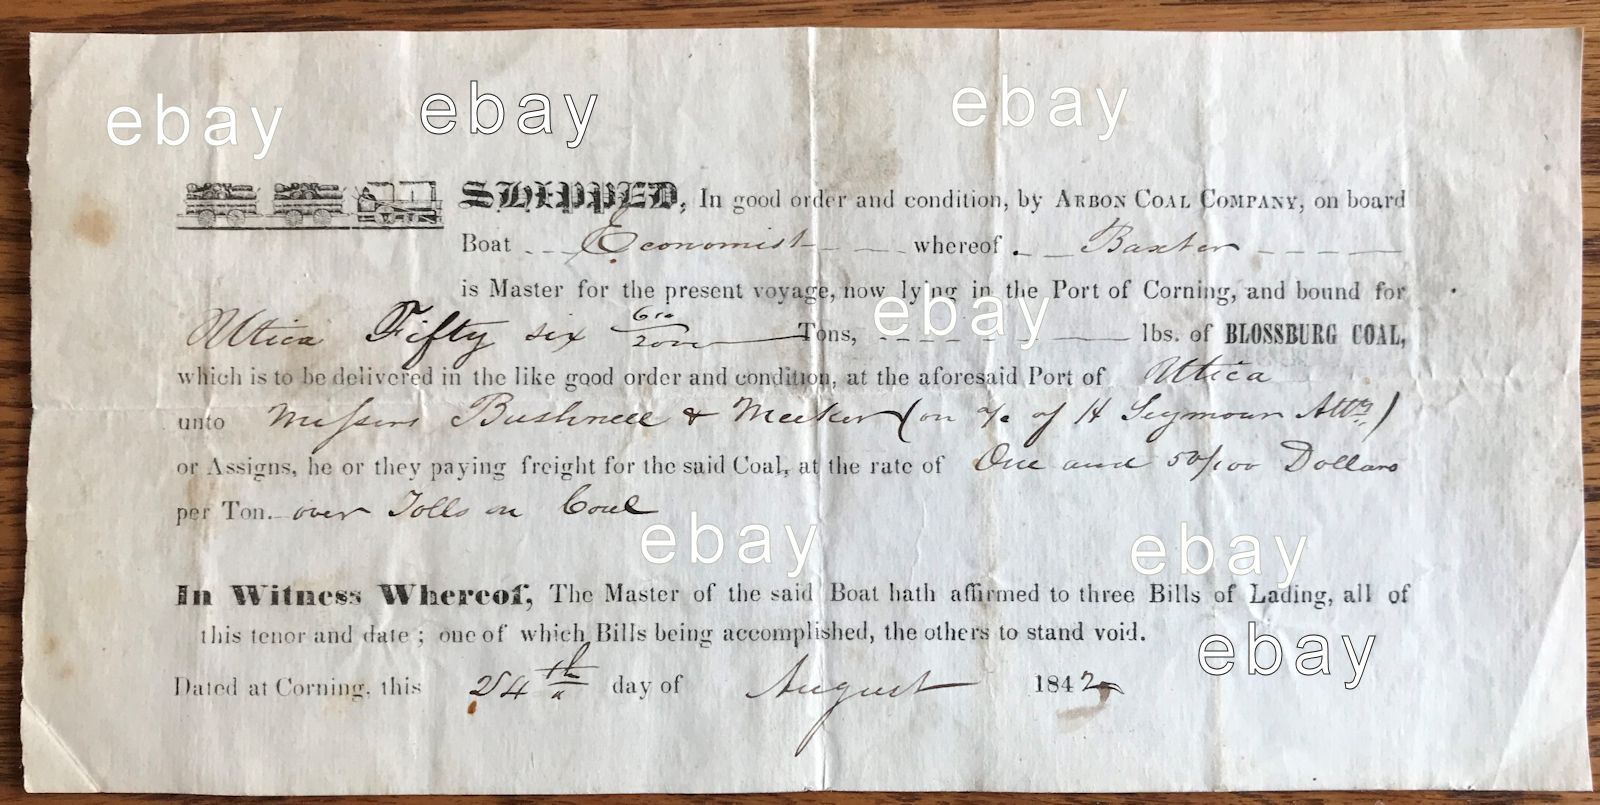 ebay ebay ebay
SHIPPED, In good order and condition, by ARBON COAL COMPANY, on board
Boat Economist whereof Baxter
is Master for the present voyage, now lying in the Port of Corning, and bound for
ebay
Utica Fifty six 610/2000 Tons, lbs. of BLOSSBURG COAL,
which is to be delivered in the like good order and condition, at the aforesaid Port of Utica
unto Messers Bushnell & Meeker (on a/c of H Seymour)
or Assigns, he or they paying freight for the said Coal, at the rate of One and 50/100 Dollars
per Ton. over Tolls on Coal
ebay ebay
In Witness Whereof, The Master of the said Boat hath affirmed to three Bills of Lading, all of
this tenor and date ; one of which Bills being accomplished, the others to stand void.
ebay
Dated at Corning, this 24th day of August 1842